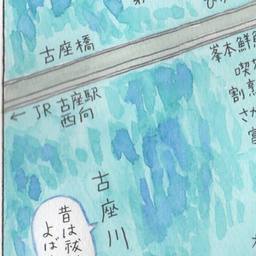 古座橋
← JR 古座駅
西向
峯本鮮
喫
割烹
さ
古座川
昔は
よば